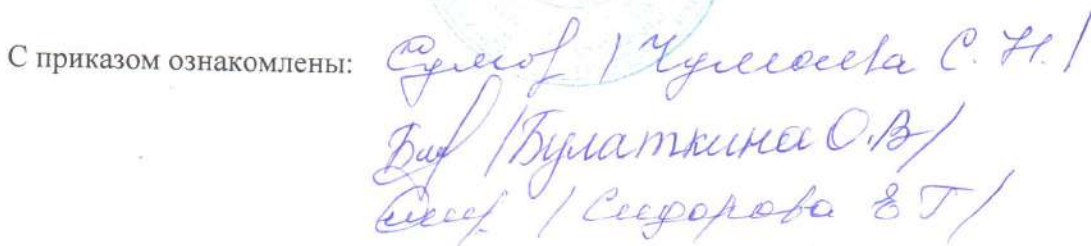 С приказом ознакомлены: / Чумаева С. Н. /
/Булаткина О.В/
/ Сидорова Е Г/